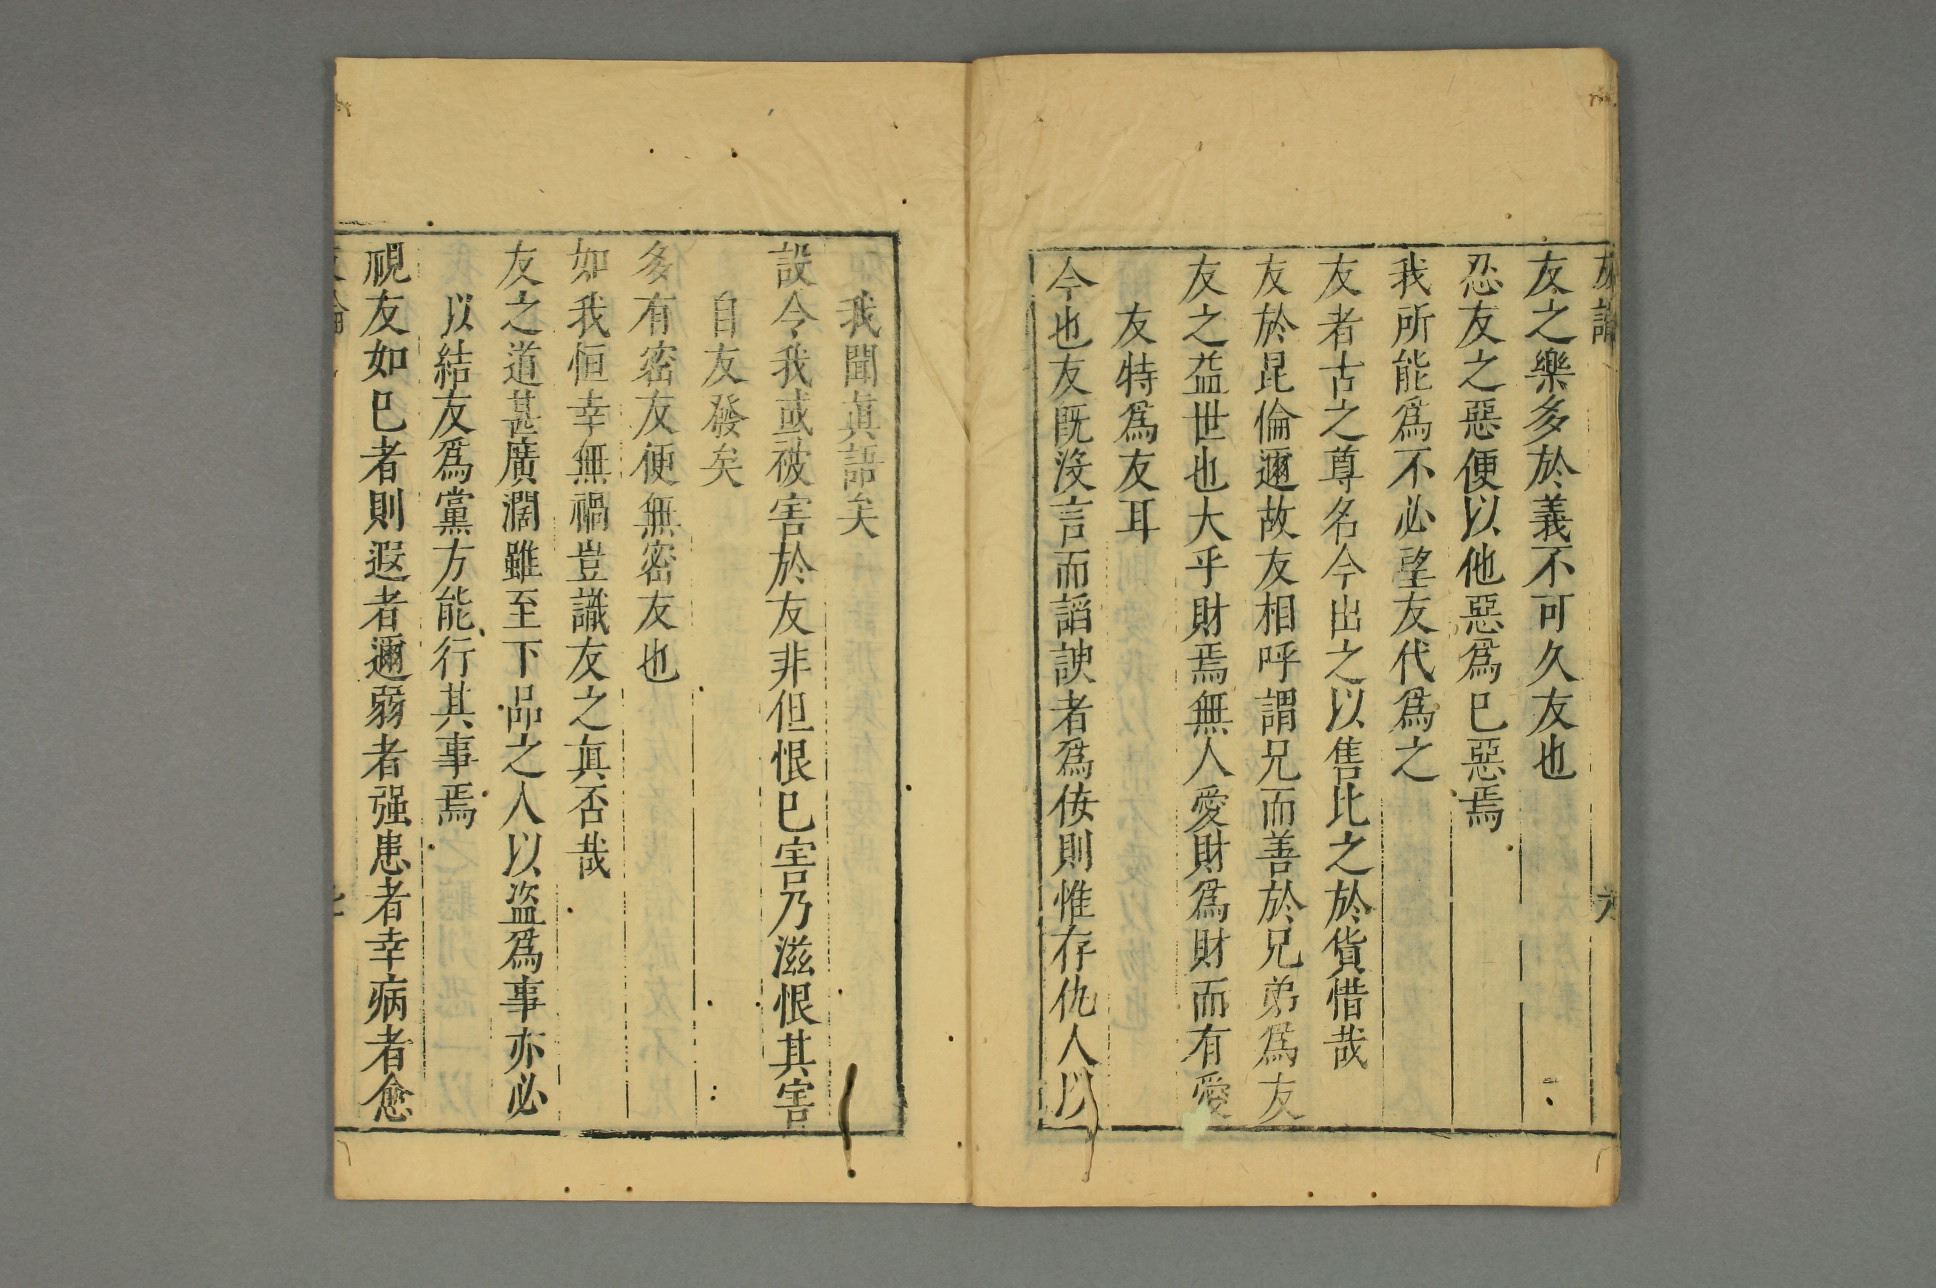 友論
六
友之樂多於義不可久友也
忍友之惡便以他惡爲已惡焉
我所能爲不必望友代爲之
友者古之尊名今出之以售比之於貨惜哉
友於昆倫邇故友相呼謂兄而善於兄弟爲友
友之益世也大乎財焉無人愛財爲財而有愛
友特爲友耳
今也友既沒言而謟諛者爲侫則惟存仇人以
我聞眞語矣
設令我或被害於友非但恨已害乃滋恨其害
自友發矣
多有密友便無密友也
如我恒幸無禍豈識友之眞否哉
友之道甚廣濶雖至下品之人以盜爲事亦必
似結友爲黨方能行其事焉
視友如已者則遐者邇弱者强患者幸病者愈